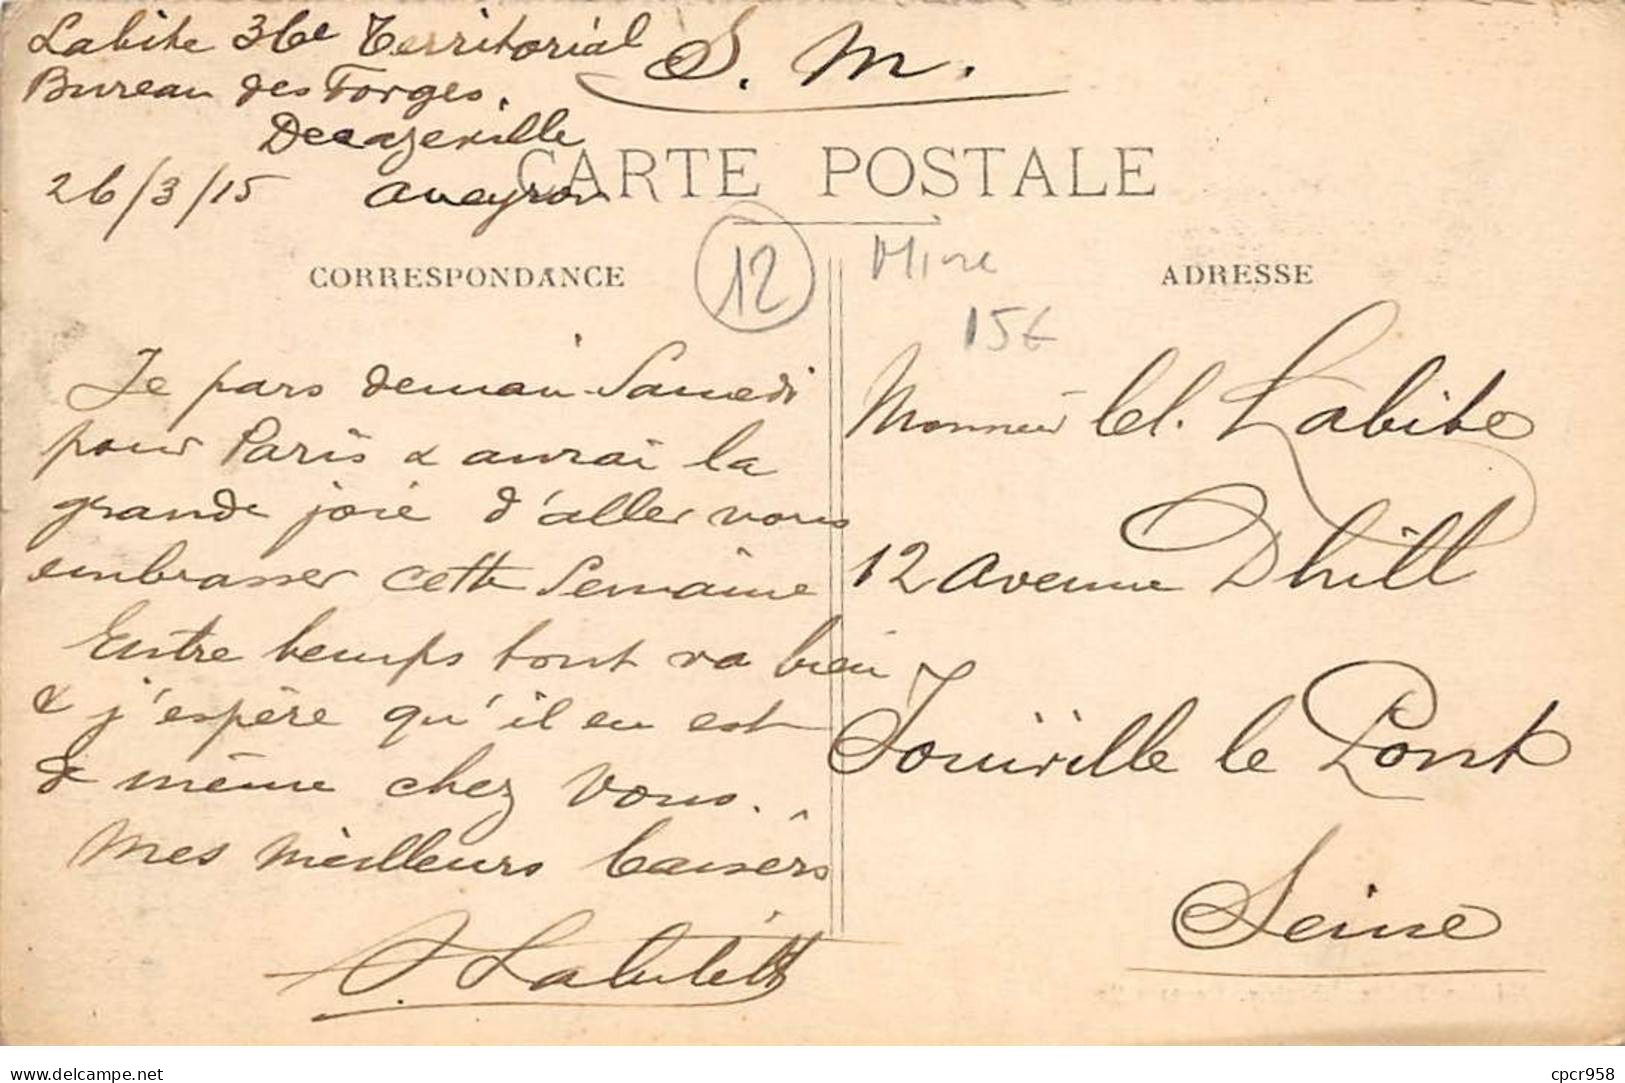 Labite 36e Territorial
S. M.
Bureau des Forges.
Decazeville
26/3/15 Aveyron
CARTE POSTALE
CORRESPONDANCE
12
Mine
15€
ADRESSE
Je pars demain Samedi
pour Paris & aurai la
grande joie d'aller vous
embrasser cette Semaine
Entre temps tout va bien
& j'espère qu'il en est
de même chez Vous.
Mes meilleurs baisers
Monsieur Labite
12 avenue
Joinville le Pont
Seine
delcampe.net
cpcr958